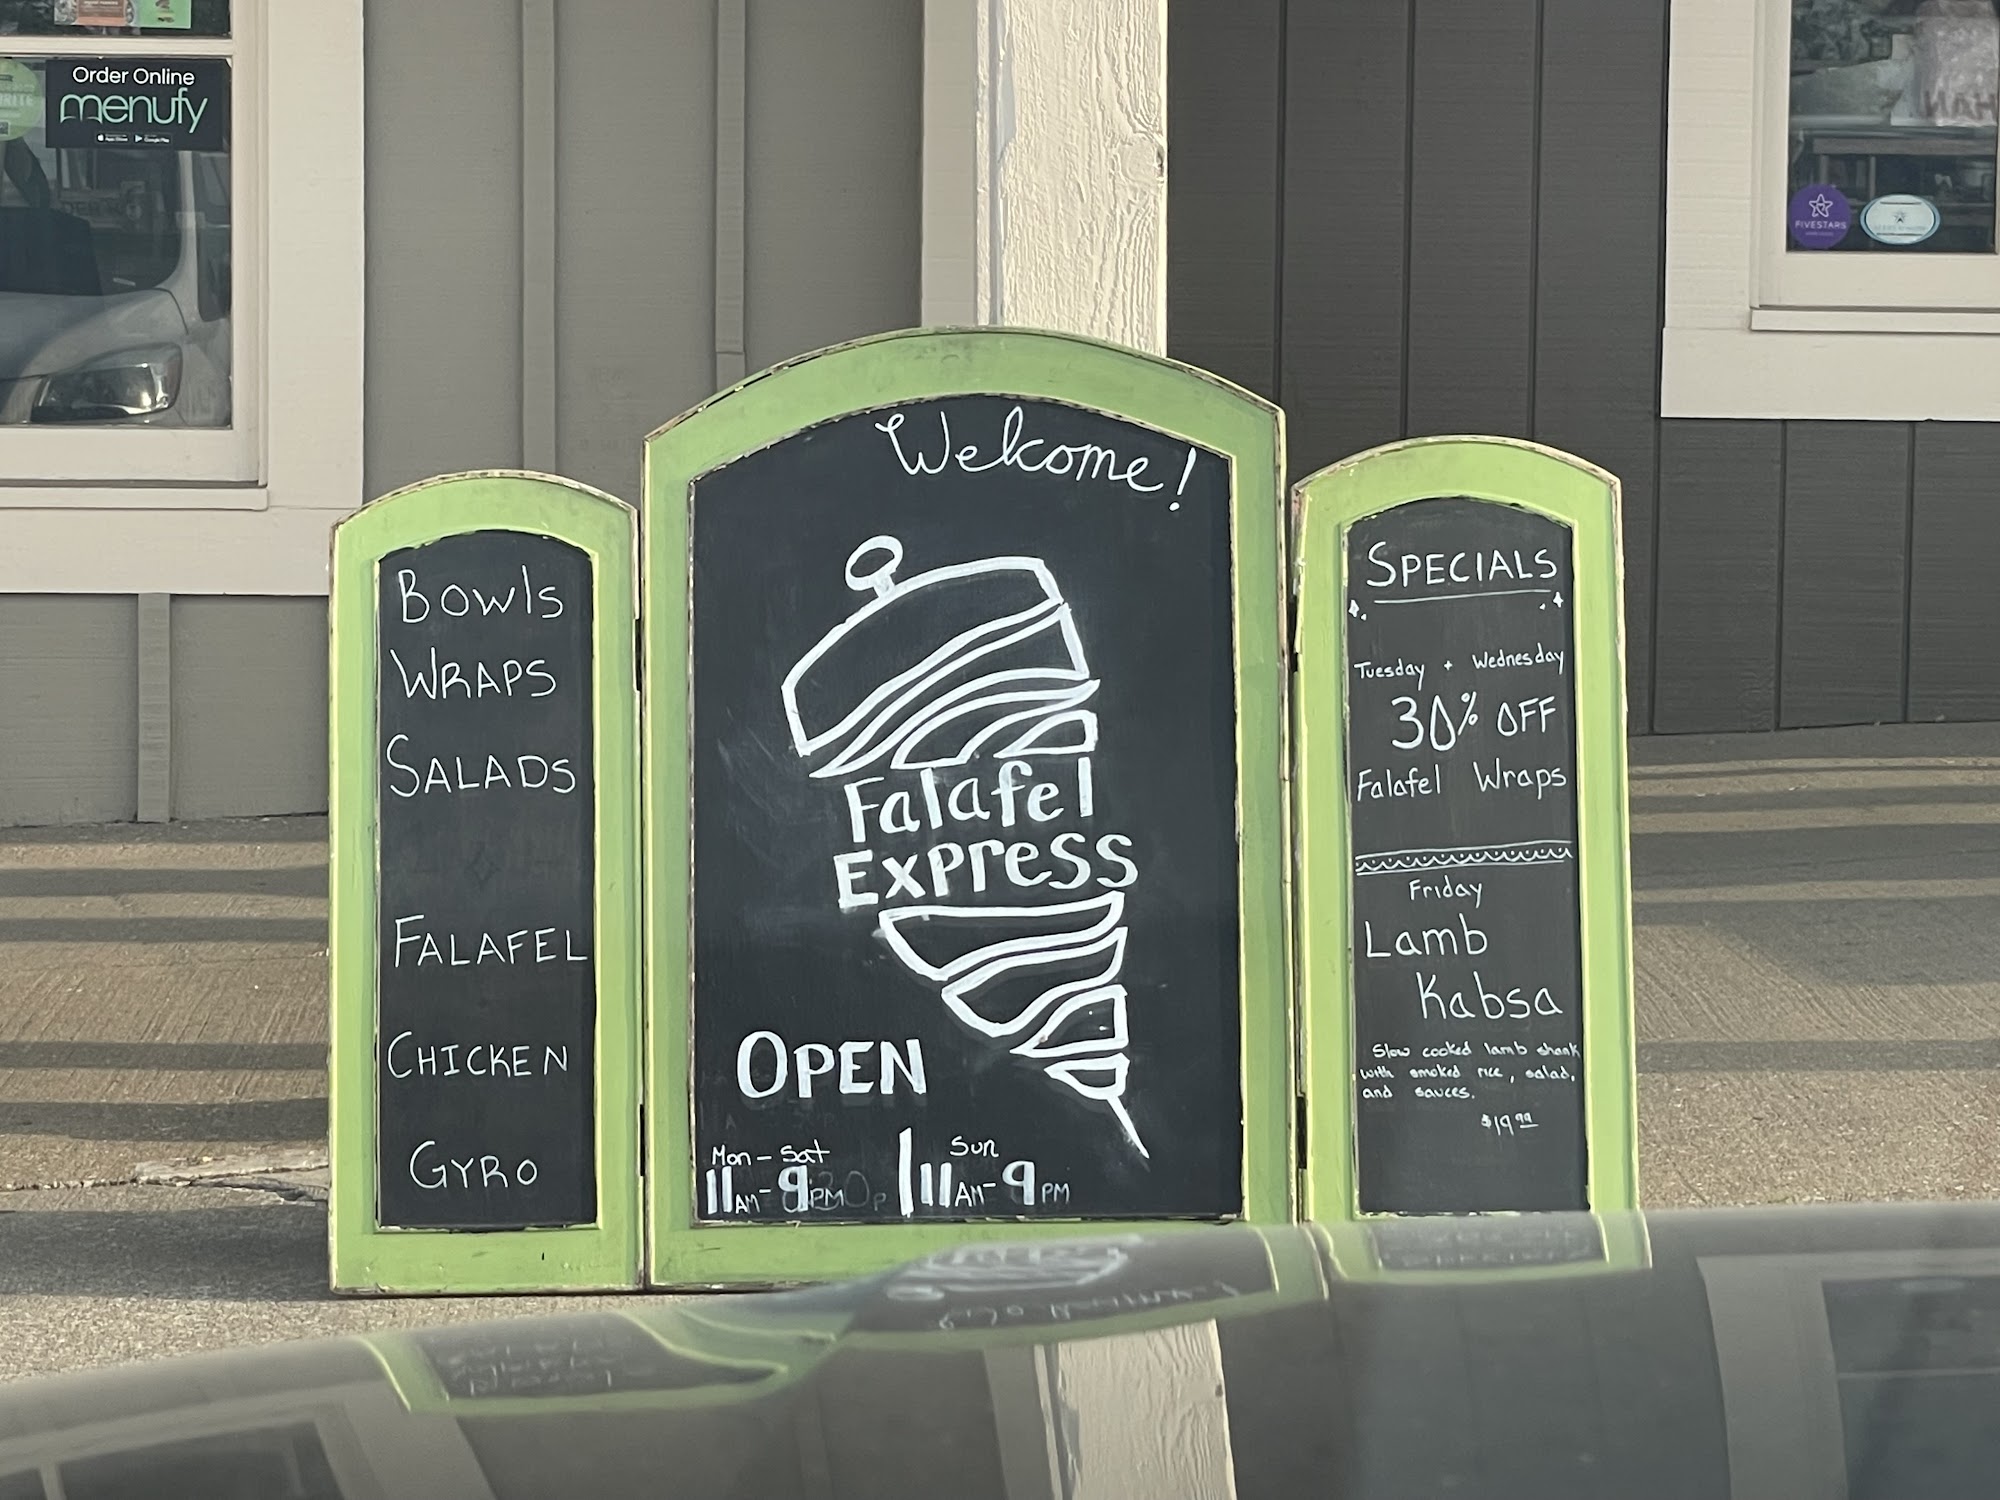 Order Online
menufy
FIVESTARS
Bowls
WRAPS
SALADS
FALAFEL
CHICKEN
GYRO
Welcome!
Falafel
Express
OPEN
Mon - Sat
11AM - 9PM
Sun
11AM - 9PM
SPECIALS
Tuesday + Wednesday
30% OFF
Falafel Wraps
Friday
Lamb
Kabsa
Slow cooked lamb shank
with smoked rice, salad,
and sauces.
$19.99